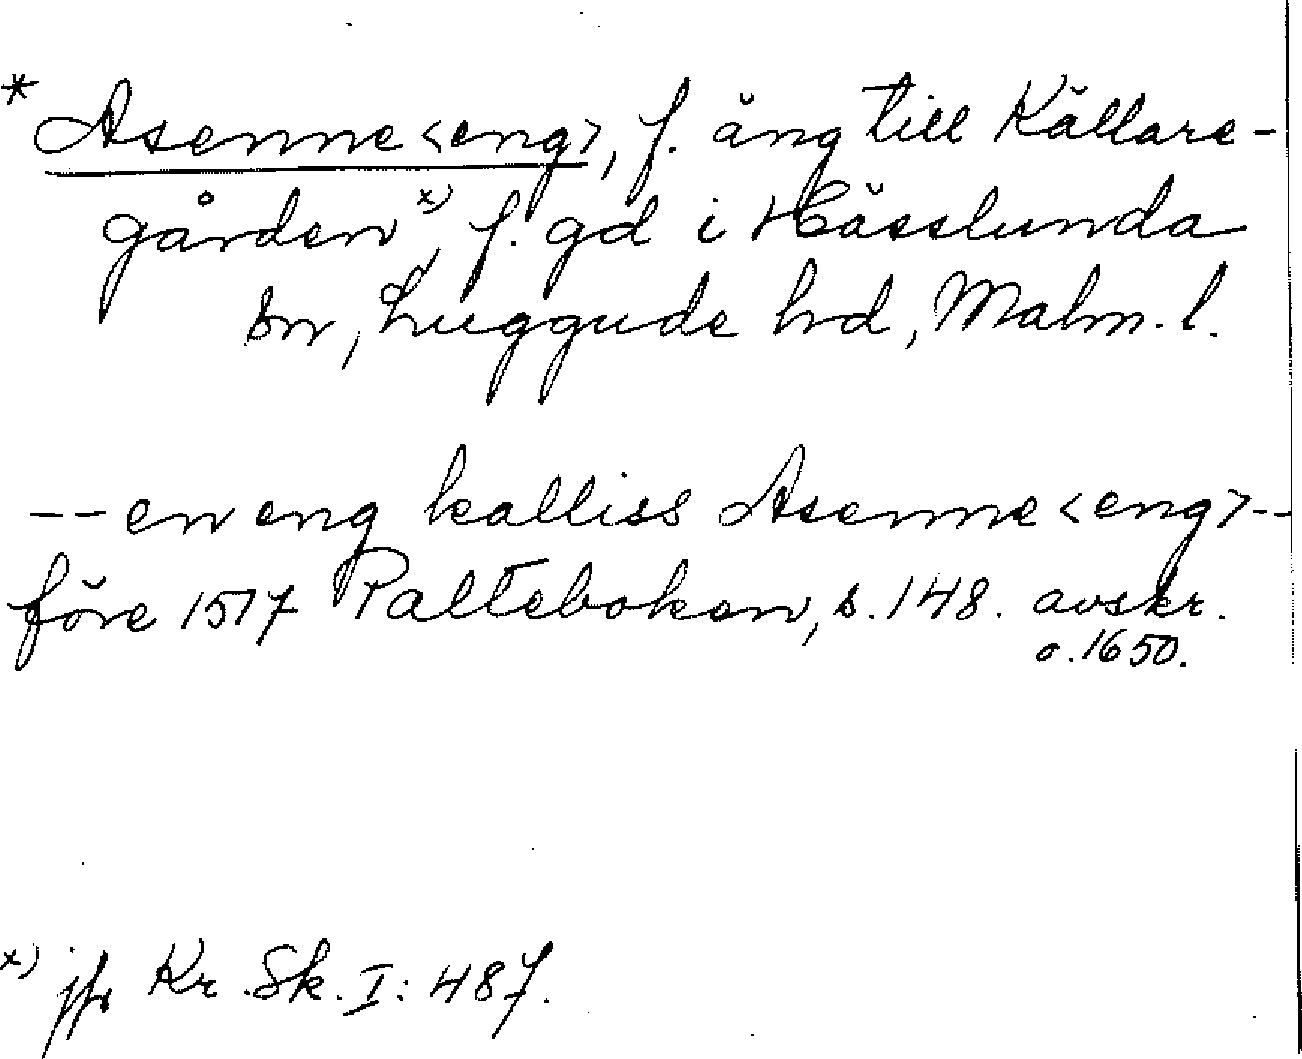 * Asenne<eng>, f. äng till Källare-
gården x), f. gd i Hässlunda
sn, Luggude hd, Malm. l.
-- en eng kalliss Asenne<eng>--
före 1517 Palteboken, s. 148. avskr.
o. 1650.
x) jfr Kr. Sk. I: 487.